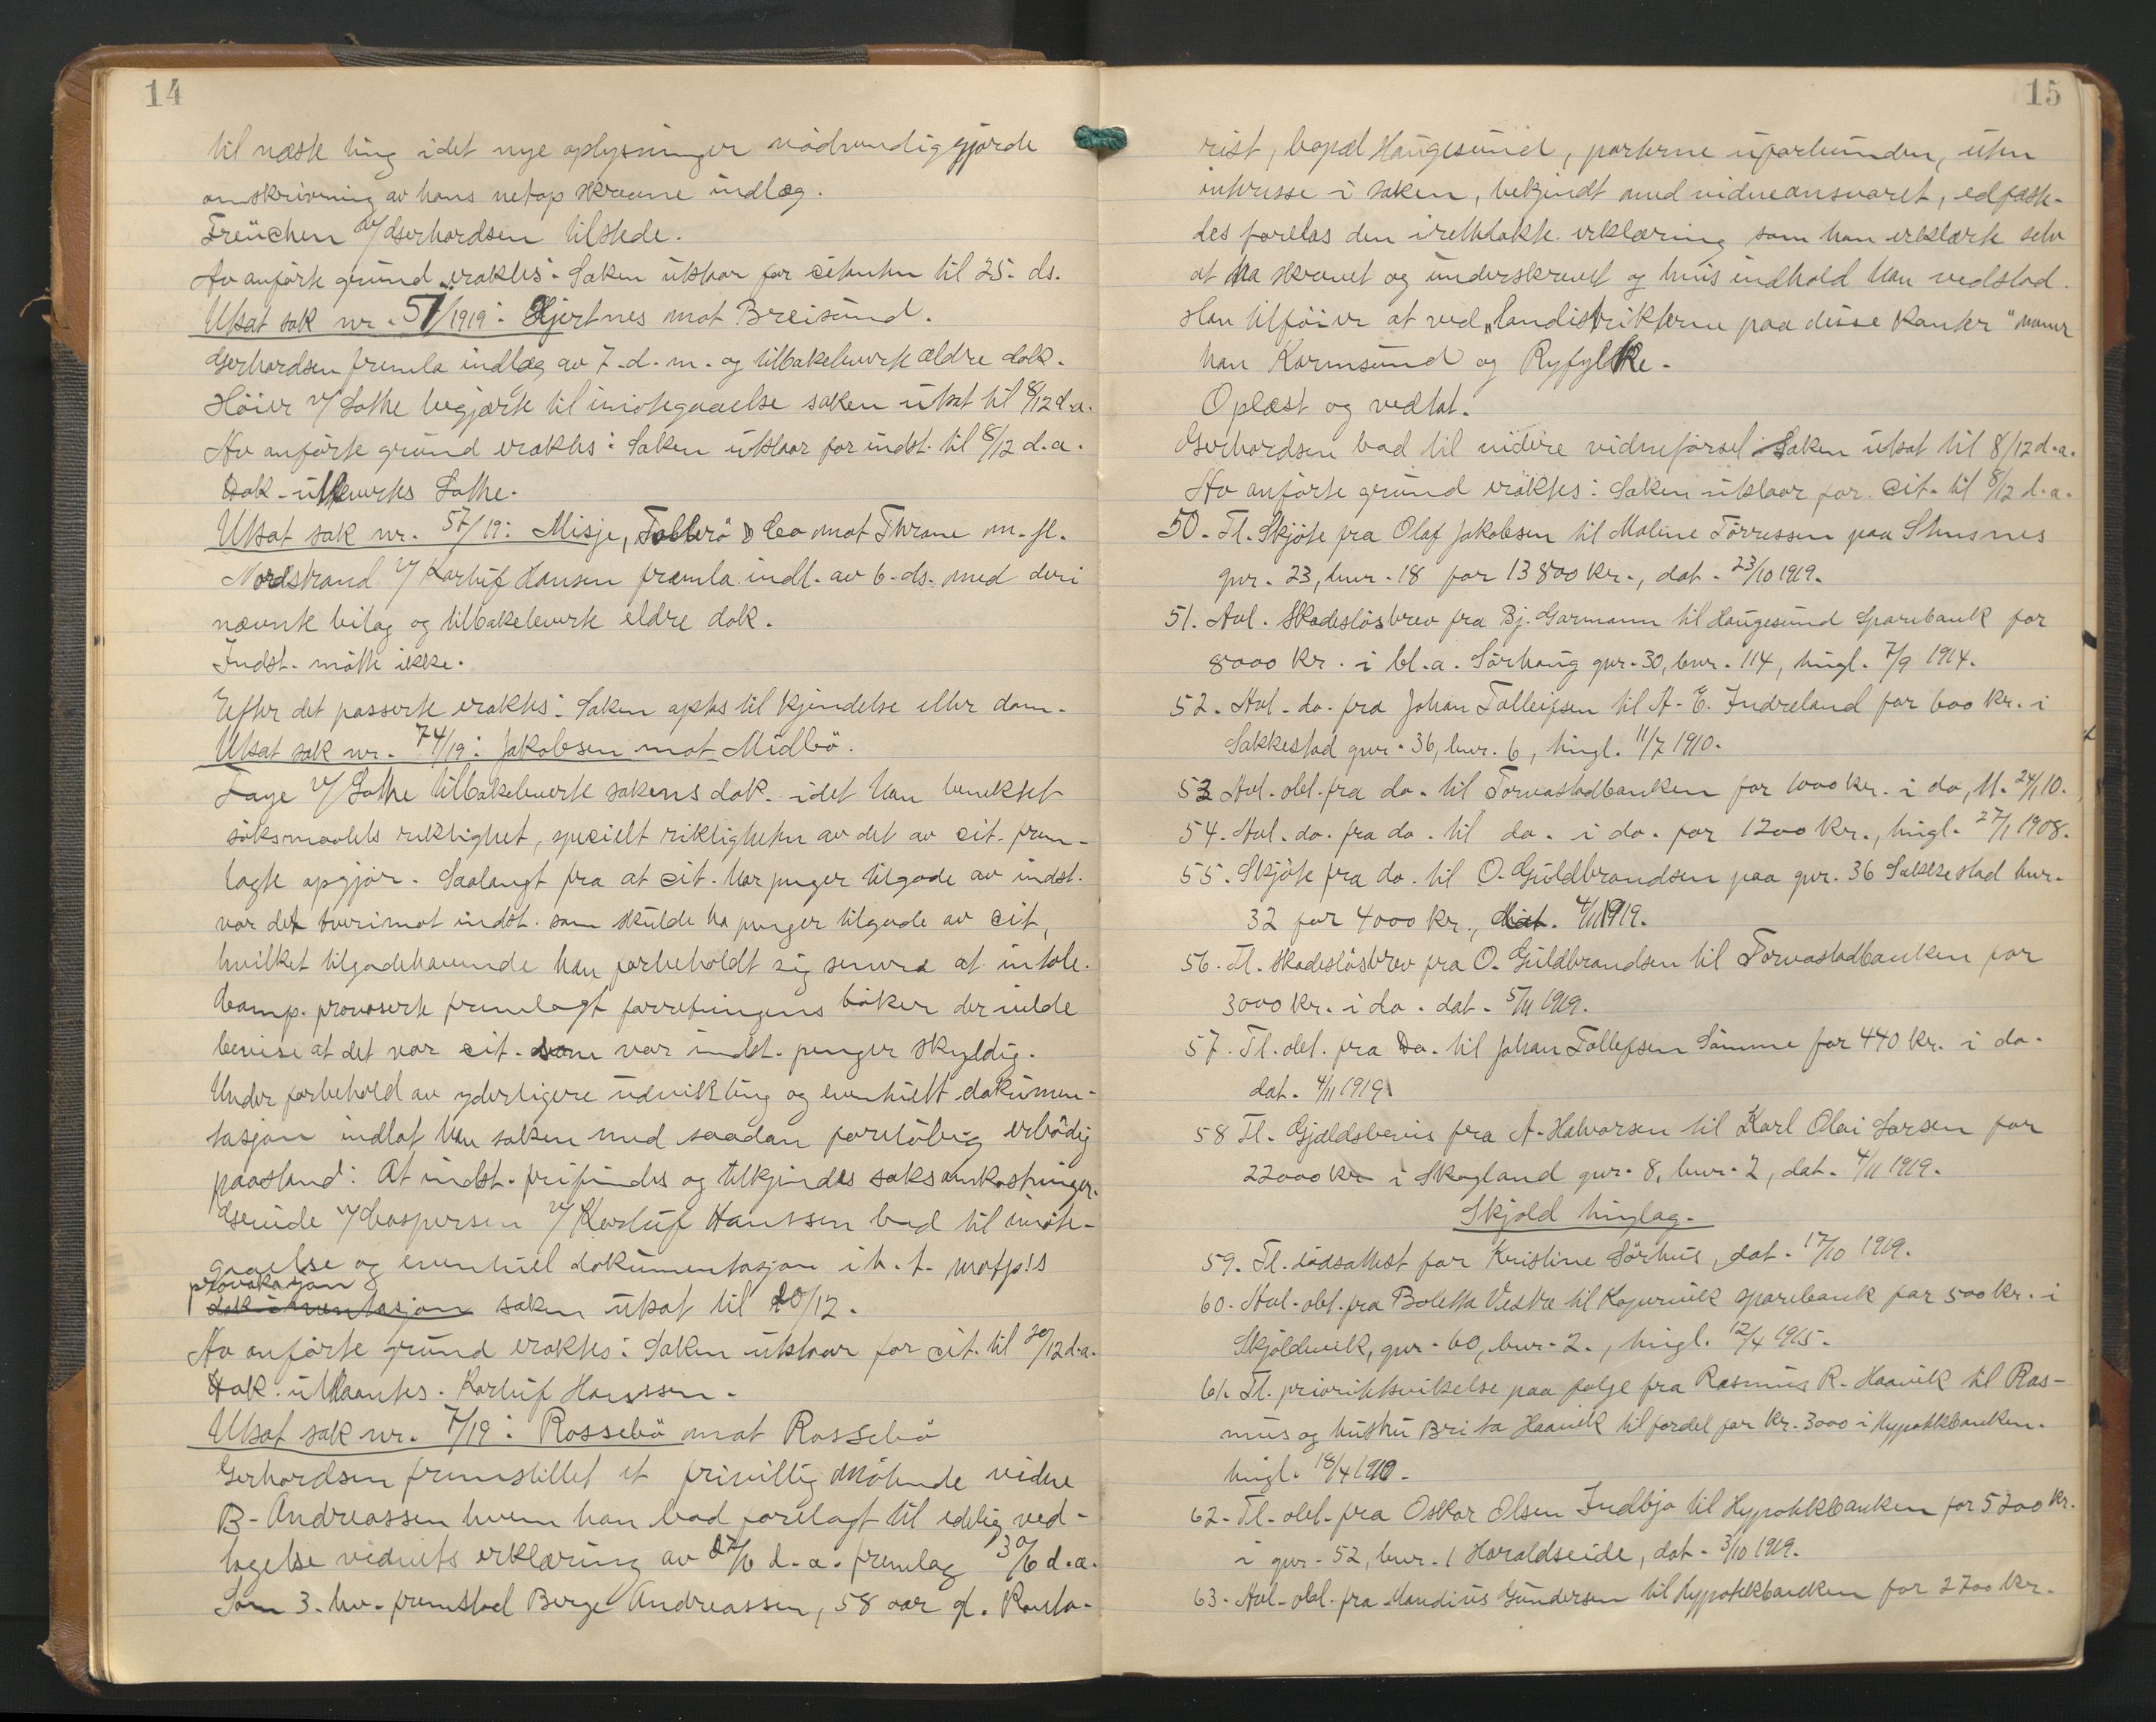 14
til næste ting idet nye oplysninger nödvendiggjorde
omskrivning av hans netop skrevne indlæg.
Freuchen v/ Gerhardsen tilstede.
Av anförte grund eraktes: Saken utstaar for citanten til 25. ds.
Utsat sak nr. 51/1919: Hjertnes mot Breisund.
Gerhardsen fremla indlæg av 7. d. m. og tilbakeleverte ældre dok.
Höier v/ Lothe begjærte til imötegaaelse saken utsat til 8/12 d.a.
Av anförte grund eraktes: Saken utstaar for indst. til 8/12 d.a.
Dok. utleveres Lothe.
Utsat sak nr. 57/19: Misje, & Co mot Thrane m. fl.
Nordstrand v/ Karluf Hansen fremla indl. av 6. ds. med deri
nævnte bilag og tilbakeleverte eldre dok.
Indst. mötte ikke.
Efter det passerte eraktes: Saken optas til kjendelse eller dom.
Utsat sak nr. 74/19: Jakobsen mot Midbö.
Faye v/ Lothe tilbakeleverte sakens dok. idet han benektet
söksmaalets riktighet, specielt rikligheten av det av cit. frem-
lagte opgjör. Saalangt fra at cit. har penger tilgode av indst.
var det tverimot indst. som skulde ha penger tilgode av cit,
hvilket tilgodehavende han forbeholdt sig senere at intale.
Comp. provoserte fremlagt forretningens böker der vilde
bevise at det var cit. som var indst. penger skyldig.
Under forbehold av yderligere utvikling og eventuelt dokumen-
tasjon indlot han saken med saadan forelöbig erbödig
paastand: At indst. frifindes og tilkjendes saksomkostninger.
v/ Caspersen v/ Karluf Hanssen bad til imöte-
gaaelse og eventuel dokumentasjon i h. t. motp's
provokasjon
dokumentasjon saken utsat til 20/12.
Av anförte grund eraktes: Saken utstaar for cit. til 20/12 d.a.
Dok. utlaantes. Karluf Hanssen.
Utsat sak nr. 7/19: Rossebö mot Rossebö
Gerhardsen fremstillet et frivillig mötende vidne
B. Andreassen hvem han bad forelagt til edelig ved-
tagelse vidnets erklæring av 27/6 d. a. fremlag 30/6 d.a.
Som 3. hv. fremstod Berge Andreassen, 58 aar gl. Konto-
15
rist, bopæl Haugesund, parterne uforbunden, uten
intresse i saken, bekjendt med vidneansvaret, edfæste-
des forelas den irettelakte erklæring som han erklærte selv
at ha skrevet og underskrevet og hvis indhold han vedstod.
Han tilföier at ved „landistrikterne paa disse kanter" mener
han Karmsund og Ryfylke.
Oplæst og vedtat.
Gerhardsen bad til videre vidneförsel Saken utsat til 8/12 d.a.
Av anförte grund eraktes: Saken utstaar for cit. til 8/12 d.a.
50. Tl. Skjöte fra Olaf Jakobsen til Maline Törressen paa Stusnes
gnr. 23, bnr. 18 for 13800 Kr., dat. 23/10 1919.
51. Avl. Skadeslösbrev fra Bj. Garmann til Haugesund Sparebank for
8000 Kr. i bl.a. Sörhaug gnr. 30, bnr. 114, tingl. 7/9 1914.
52. Avl. do. fra Johan Tolleifsen til A. E. Indreland for 600 kr. i
Sakkestad gnr. 36, bnr. 6, tingl. 11/7 1910.
53 Avl. obl. fra do. til Torvastadbanken for 1000 kr. i do, tl. 24/1 10.
54. Avl. do. fra do. til do. i do. for 1200 Kr., tingl. 27/1 1908.
55. Skjöte fra do. til O. Guldbrandsen paa gnr. 36 Sakkestad bnr.
32 for 4000 kr., dat. 4/11 1919.
56. Tl. skadeslösbrev fra O. Guldbrandsen til Torvastadbanken for
3000 kr. i do. dat. 5/11 1919.
57. Tl. obl. fra Do. til Johan Tollefsen Sömme for 440 kr. i do.
dat. 4/11 1919
58 Tl. Gjældsbevis fra A. Halvorsen til Karl Olai Larsen for
22000 kr i Skogland gnr. 8, bnr. 2, dat. 4/11 1919.
Skjold tinglag.
59. Tl. dödsattest for Kristine Sörhus, dat. 17/10 1919.
60. Avl. obl. fra Boletta Vestre til Kopervik sparebank for 500 kr. i
Skjoldevik, gnr. 60, bnr. 2., tingl. 12/4 1915.
61. Tl. prioritetsvikelse paa folge fra Rasmus R. Haavik til Ras-
mus og hustru Brita Haavik til fordel for kr. 3000 i Hypotekbanken.
tingl. 18/4 1910.
62. Tl. obl. fra Oskar Olsen Indbjo til Hypotekbanken for 5200 kr.
i gnr. 52, bnr. 1 Haraldseide, dat. 3/10 1919.
63. Avl. obl. fra Mandius Gundersen til Hypotekbanken for 2700 kr.